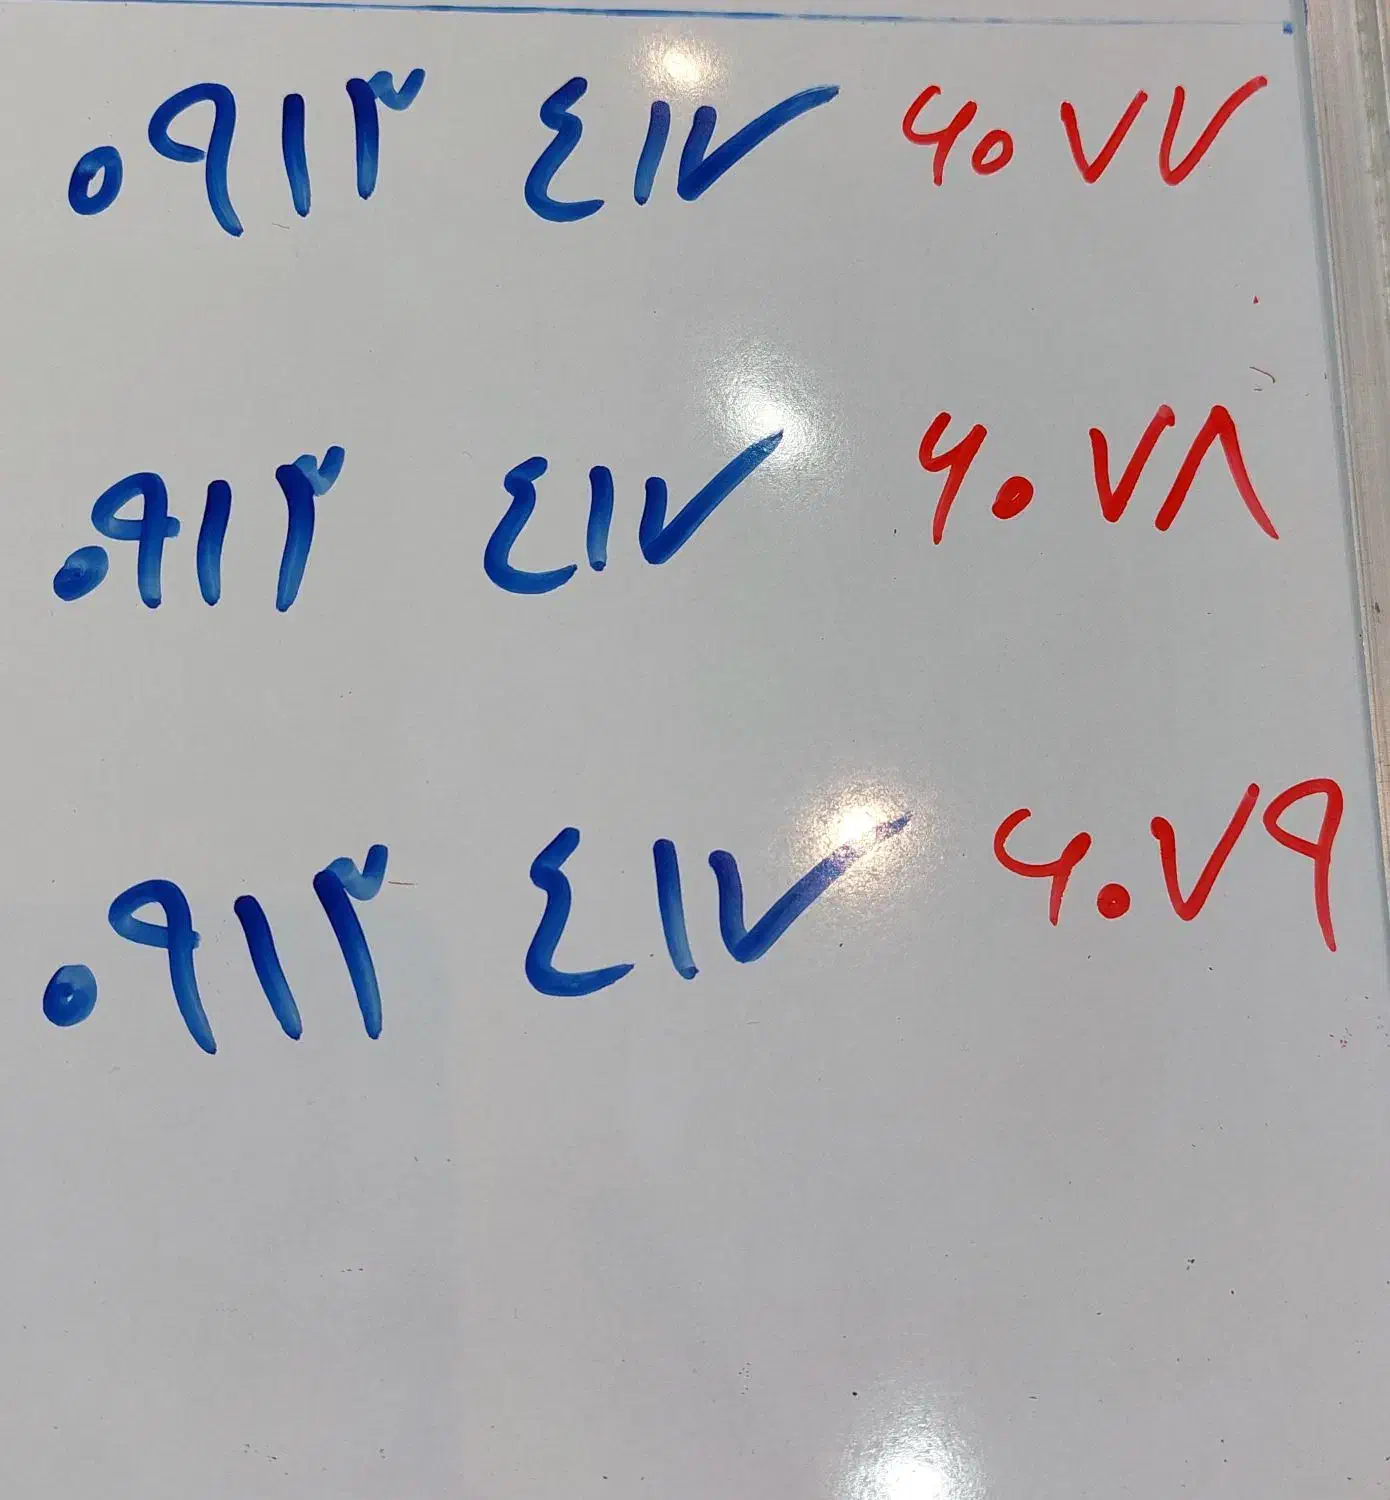 ۰۹۱۳ ٤۱۷ ۶۰۷۷
۰۹۱۳ ٤۱۷ ۶۰۷۸
۰۹۱۳ ٤۱۷ ۶۰۷۹